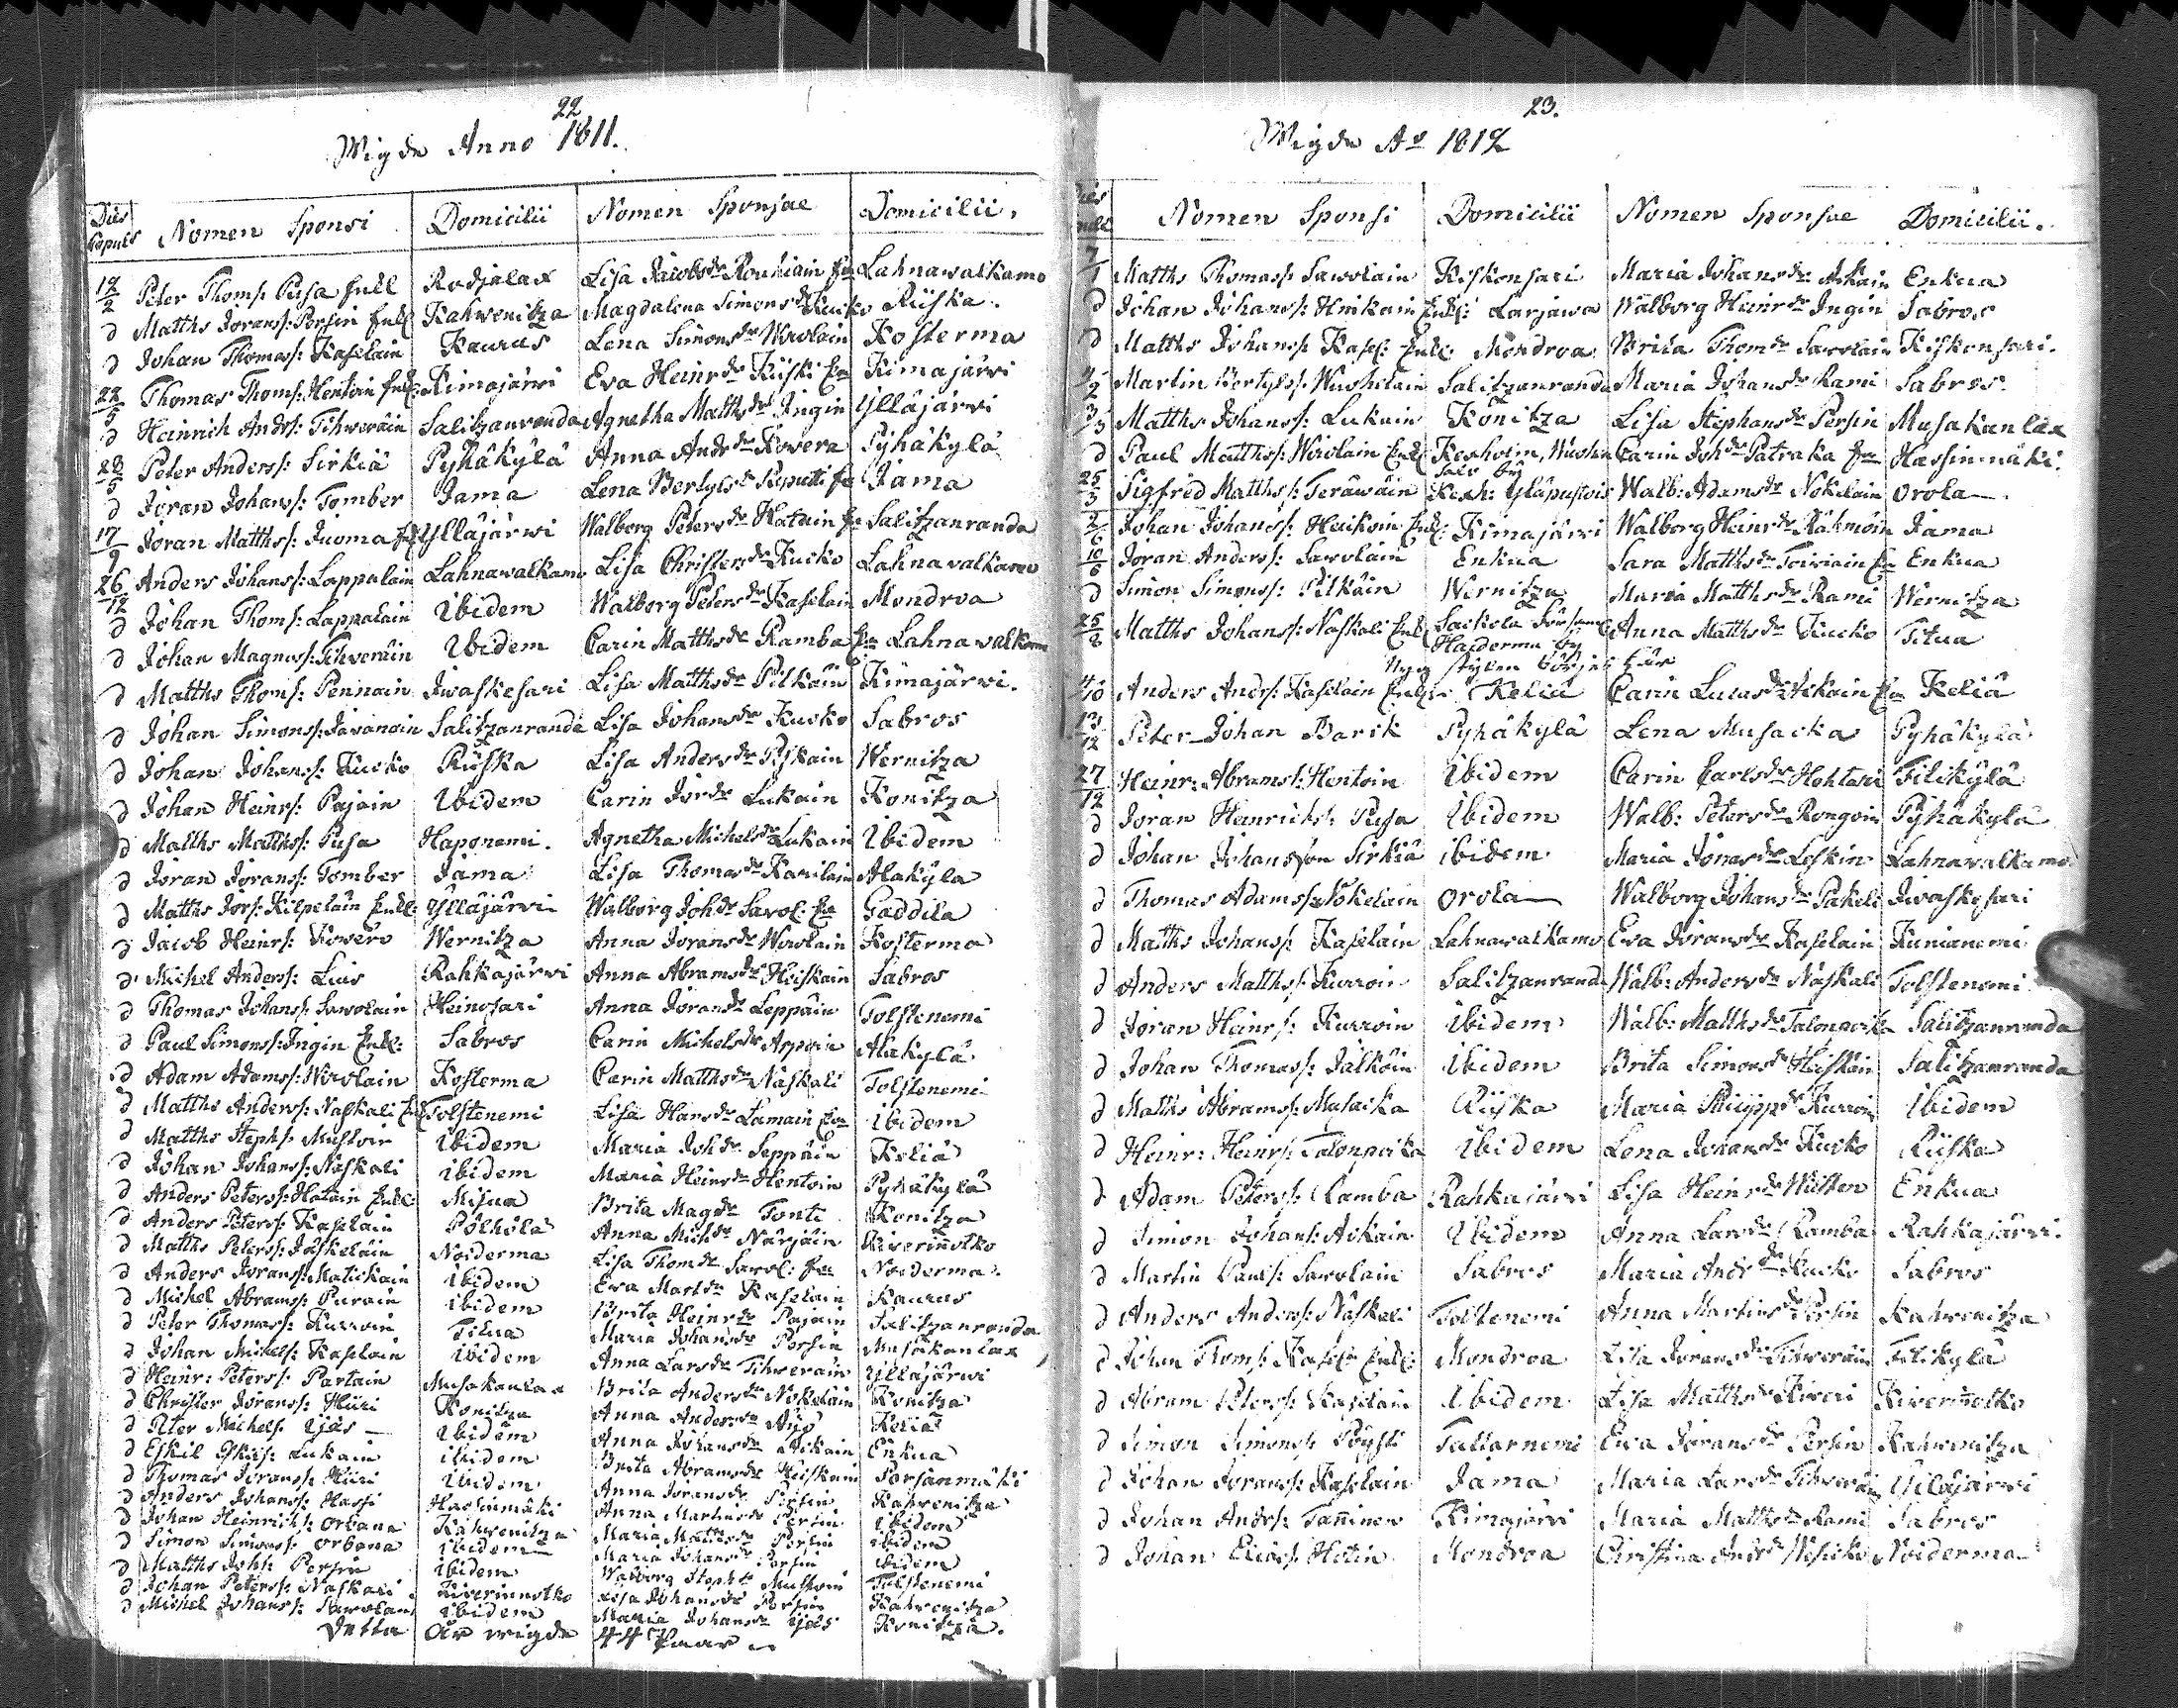 22
Wigde Anno 1811.
Dies Copuls Nomen Sponsi Domicilii Nomen Sponsae Domicilii.
12/2 Peter Thoms: Pusa Enkl Rodjalax Lisa Jacobsdr Rouhiain Ea Lahnawalkamo
d Matths Jörans: Persin Enkl Kahwenitza Magdalena Simonsdr Kucko Riiska.
d Johan Thomass: Kaselain Kaurus Lena Simonsdr Wirolain Kosterma
22/5 Thomas Thoms: Hentoin Enkl: Kimajärwi Eva Heinrdr Kiiski Ea Kimajärwi
d Heinrich Andrs: Tihweräin Salitzanranda Agnetha Matthsdr Ingin Ylläjärwi
23/5 Peter Anderss: Sirkiä Pyhäkylä Anna Andrdr Kowera Pyhäkylä
d Jöran Johanss: Tomber Jama Lena Bertylsdr Reputti Ea Jama
17/9 Jöran Matthss: Juoma Ekl Ylläjärwi Walborg Petersdr Hatuin Ea Salitzanranda
26/12 Anders Johanss: Lappalain Lahnawalkamo Lisa Christersdr Kucko Lahnavalkamo
d Johan Thoms: Lappalain Ibidem Walborg Petersdr Kaselain Mondroa
d Johan Magnuss: Tihweräin Ibidem Carin Matthsdr Ramba Ea Lahnawalkamo
d Matths Thoms: Pennain Iwaskesari Lisa Matthsdr Pilkäin Kimajärwi.
d Johan Simonss: Javanain Salitzanranda Lisa Johansdr Kucko Sabros
d Johan Johans: Kucko Riiska Lisa Andersdr Piskain Wernitza
d Johan Heinrs: Pajain Ibidem Carin Jördr Lukain Konitza
d Matths Matthss: Pusa Haponemi. Agnetha Michelsdr Lukain Ibidem
d Jöran Jöranss: Tomber Jama Lisa Thomasdr Karilain Alakyla
d Matths Jörs: Kilpeläin Enkl: Ylläjärwi Walborg Johdr Savol: Ea Gaddila
d Jacob Heinrs: Kowero Wernitza Anna Jöransdr Wirolain Kosterma
d Michel Anderss: Luis Rahkajärwi Anna Abramsdr Heiskain Sabros
d Thomas Johanss: Sawolain Heinosari Anna Jöransdr Leppäin Tolstenemi
d Paul Simonss: Ingin Enkl: Sabros Carin Michelsdr Arpoin Alakylä
d Adam Adamss: Wirolain Kosterma Carin Matthsdr Näskali Tolstenemi
d Matths Anderss: Naskali Ekl Tolstenemi Lisa Hansdr Lamain Ea Ibidem
d Matths Stephs: Mustoin Ibidem Maria Johdr Seppäin Keliä
d Johan Johanss: Näskali Ibidem Maria Heinrdr Hentoin Pyhäkylä
d Anders Peterss: Hatain Enkl: Misua Brita Magdr Tonti Konitza
d Anders Peterss: Kaselain Pölhölä Anna Michdr Närjäin Kiverinotko
d Matths Peterss: Jäskeläin Noiderma Lisa Thomdr Savol: Ea Noiderma.
d Anders Jöranss: Matickain Ibidem Eva Martsdr Kaselain Kaurus
d Michel Abramss: Purain Ibidem Brita Heinrdr Pajain Salitzanranda
d Peter Thomass: Kurroin Titua Maria Johansdr Persin Musakanlax
d Johan Mickels: Kaselain Ibidem Anna Larsdr Tihweräin Ylläjärwi
d Heinr: Peterss: Partain Musakanlax Brita Andersdr Nokelain Konitza
d Christer Jöranss: Hiiri Konitza Anna Andersdr Äijö Keliä
d Peter Michels: Ijäs Ibidem Anna Johansdr Aikain Enkua
d Eskil Eskils: Lukain Ibidem Brita Abramsdr Heiskain Porsanmäki
d Thomas Jöranss: Hiiri Ibidem Anna Joransdr Persin Kahwenitza
d Anders Johanss: Hassi Hassinmäki Anna Martinsdr Persin Ibidem
d Johan Heinrichs: Orbana Kahwenitza Maria Matthsdr Persin Ibidem
d Simon Simonss: Orbana Ibidem Maria Johansdr Persin Ibidem
d Matths Johs: Persin Ibidem Walborg Stephdr Mustoin Tolstenemi
d Johan Peterss: Naskali Kiverinnotko Lisa Johansdr Persin Kahwenitza
d Michel Johanss: Sawolain Ibidem Maria Johansdr Ijäs Konitza.
Detta År wigde 44 Paar
23.
Wigde Ao 1812
Dies Nomen Sponsi Domicilii Nomen Sponsae Domicilii.
7/1 Matths Thomass: Sawolain Kiskonsari Maria Johansdr Aikain Enkua
d Johan Johanss: Heikain Enkl: Larjawa Walborg Heinrdr Ingin Sabros
d Matths Johanss: Kasel: Enkl: Mondroa Brita Thomdr Sawolain Kiskonsari.
Martin Bertylss: Wuohelain Salitzanranda Maria Johansdr Rami Sabros
3/3 Matths Johanss: Lukain Konitza Lisa Stephansdr Persin Musakanlax
d Paul Matthss: Wirolain Enkl Kexholm, Carin Johdr Patraka Ea Hassinmäki.
25/5 Sigfred Matthss: Teräwäin Kexh: Walb: Adamsdr Nokelain Orola
2/6 Johan Johanss: Heickoin Enkl: Kimajärwi Walborg Heinrdr Rähmöin Jama
10/6 Jöran Anderss: Sawolain Enkua Sara Matthsdr Toiviain Ea Enkua
d Simon Simonss: Pilkäin Wernitza Maria Matthsdr Rami Wernitza
25/8 Matths Johanss: Naskali Enkl Sackola Anna Matthsdr Kucko Titua
Haiderma by
Nya stylen börjas här
4/10 Anders Andrs: Kaselain Enkl: Keliä Carin Lucasdr Aikain Ea Keliä
13/12 Peter Johan Barik Pyhäkylä Lena Musacka Pyhäkylä
27/12 Heinr: Abramss: Hentoin Ibidem Carin Carlsdr Hohtari Tilikylä
d Jöran Heinrichs: Pusa Ibidem Walb: Petersdr Rongoin Pyhäkylä
d Johan Johansson Sirkiä ibidem Maria Jonasdr Leskin Lahnavalkamo
d Thomas Adamss: Nokelain Orola Walborg Johansdr Pakeli Iwaskesari
d Matths Johanss: Kaselain Lahnawalkamo Eva Jöransdr Kaselain Kunianemi
d Anders Matthss: Kurroin Salitzanranda Walb: Andersdr Näskali Tolstenemi
d Jöran Heinrs: Kurroin Ibidem Walb: Matthsdr Talonpoika Salitzanranda
d Johan Thomass: Jälköin Ibidem Brita Simonsdr Heiskain Salitzanranda
d Matths Abramss: Musacka Riiska Maria Philippdr Kurroin Ibidem
d Heinr: Heinrs: Talonpoika Ibidem Lena Johansdr Kucko Riiska
d Adam Peterss: Ramba Rahkajärwi Lisa Heinrdr Enkua
d Simon Johans: Aikain Ibidem Anna Larsdr Ramba Rahkajärwi.
d Martin Pauls: Sawolain Sabros Maria Andrdr Kucko Sabros
d Anders Anderss: Näskali Tolstenemi Anna Martinsdr Persin Kahwenitza
d Johan Thoms: Kaseln Enkl: Mondroa Lisa Jöransdr Tihweräin Tilikylä
d Abram Peterss: Kaselain Ibidem Lisa Matthsdr Kiveri Kiverinotko
d Simon Simons: Pöysti Tallarnemi Eva Jöransdr Persin Kahwenitza
d Johan Jöranss: Kaselain Jama Maria Larsdr Tihweräin Ylläjärwi
d Johan Andrs: Tanninen Kimajärwi Maria Matthsdr Rami Sabros
d Johan Eliass: Hetin Mondroa Christina Andrdr Noiderma